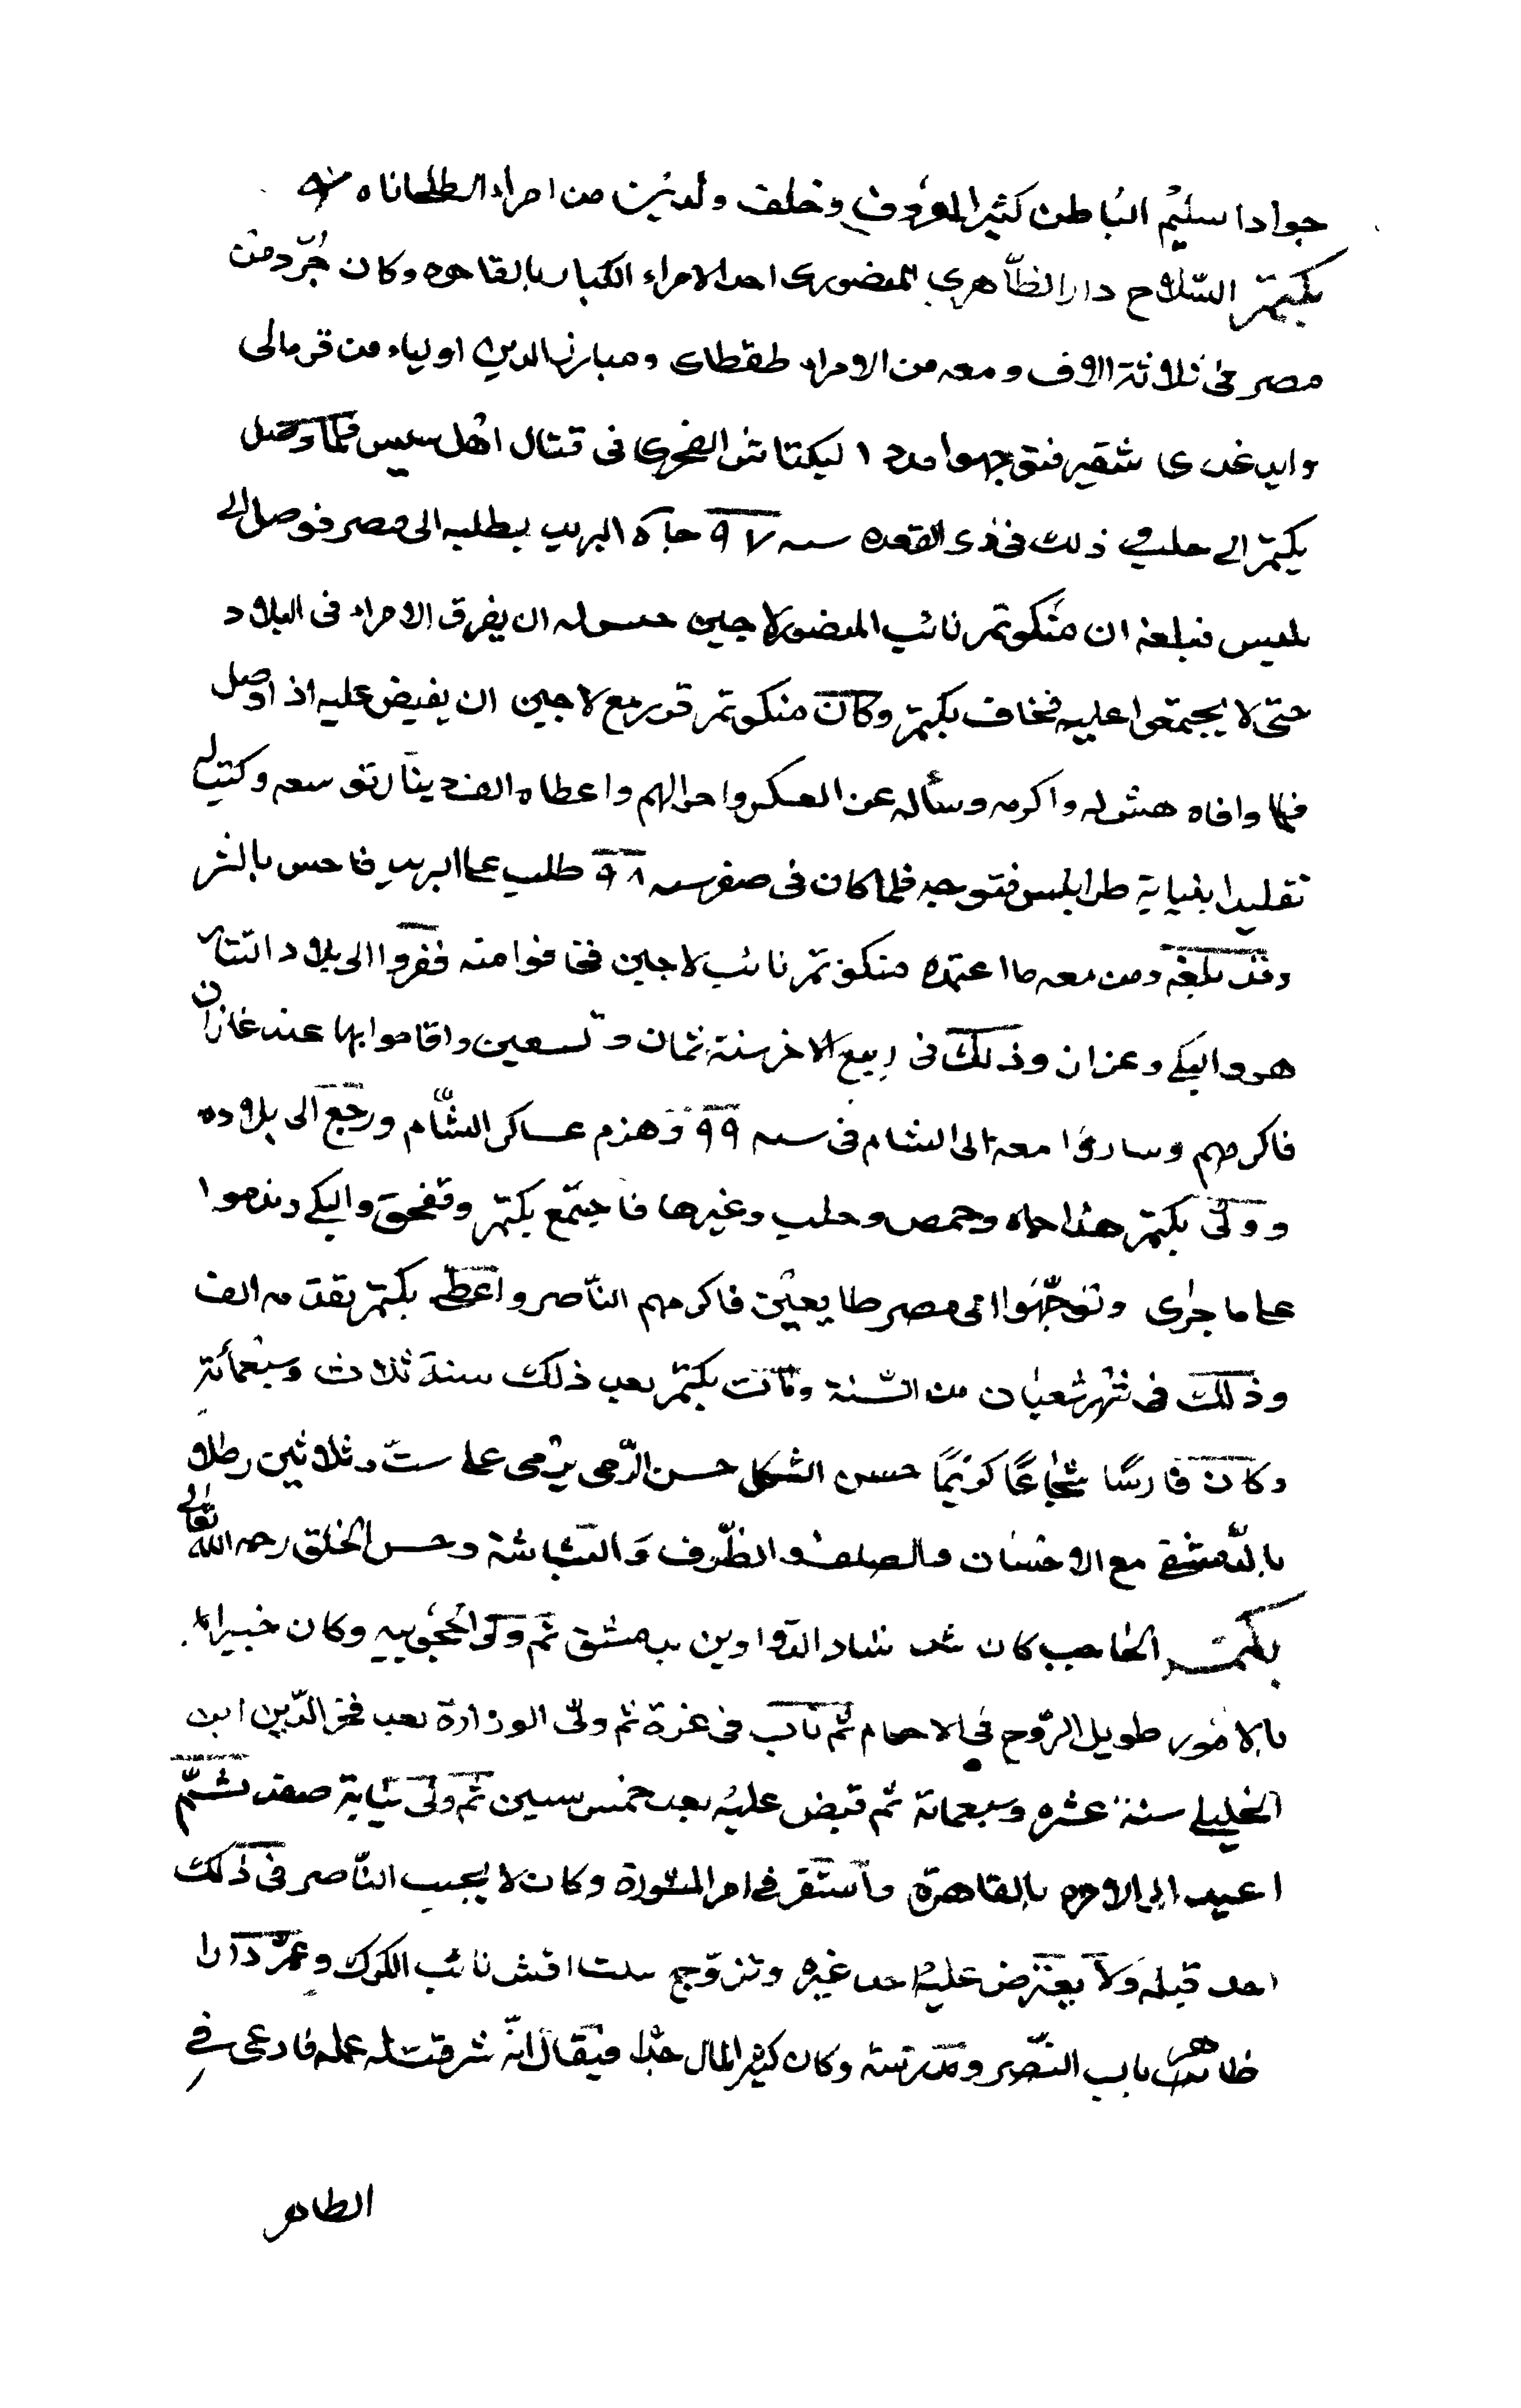 جوادا سليم الباطن كثير المعروف وخلف ولدين من امراء الطبلخاناه
بكتمر السلاح دار الظاهري المنصورى احد الامراء الكبار بالقاهره وكان جرد من
مصر فى ثلاثة الاف ومعه من الامراء طقطاى ومبارز الدين اولياء من قرمالى
وايدغدى شقير فتوجهوا مددا لبكتاش الفخرى فى قتال اهل سيس فلما وصل
بكتمر الى حلب وذلك فى ذى القعده سنه ٩٧ جاه البريد بطلبه الى مصر فوصل الى
بلبيس فبلغه ان منكوتمر نائب المنصور لاجين حسن له ان يفرق الامراء فى البلاد
حتى لا يجتمعوا عليه فخاف بكتمر وكان منكوتمر قرر مع لاجين ان يقبض عليه اذا وصل
فلما وافاه هش له واكرمه وسأله عن العسكر واحوالهم واعطاه الف دينار توسعه وكتب له
تقليدا بنيابة طرابلس فتوجه فلما كان فى صفر سنه ٩٨ طلب على البريد فاحس بالشر
وقد بلغه ومن معه ما اعتمده منكوتمر نائب لاجين فخافوا منه ففروا الى بلاد التتار
هو والبكي وعزاز وذلك فى ربيع الاخر سنة ثمان وتسعين واقاموا بها عند غازان
فاكرمهم وساروا معه الى الشام فى سنه ٩٩ وهزم عساكر الشام ورجع الى بلاده
وولى بكتمر هذا حماه وحمص وحلب وغيرها فاجتمع بكتمر وقفجق والبكي وندموا
على ما جرى وتوجهوا الى مصر طايعين فاكرمهم الناصر واعطى بكتمر تقدمه الف
وذلك فى شهر شعبان من السنة ومات بكتمر بعد ذلك سنة ثلاث وسبعمائة
وكان فارسا شجاعا كريما حسن الشكل حسن الرمى يرمى على ست وثلاثين رطلا
بالدمشقى مع الاحسان والصلف والظرف والبشاشة وحسن الخلق رحمه الله تعالى
بكتمر الحاجب كان شد شاد الدواوين بدمشق ثم ولى الحجوبيه وكان خبيرا
بالامور طويل الروح فى الاحكام ثم ناب فى غزة ثم ولى الوزارة بعد فخر الدين ابن
الخليلى سنة عشره وسبعماة ثم قبض عليه بعد خمس سنين ثم ولى نيابة صفد ثم
اعيد الى الامره بالقاهرة واستقر فى امر المشورة وكان لا يجيب الناصر فى ذلك
احد قبله ولا يعترض عليه احد غيره وتزوج بنت اقش نائب الكرك وعمر دارا
ظاهر باب النصر ومدرسة وكان كثير المال جدا فيقال انه سرقت له عمله فادعى فى
الظاهر